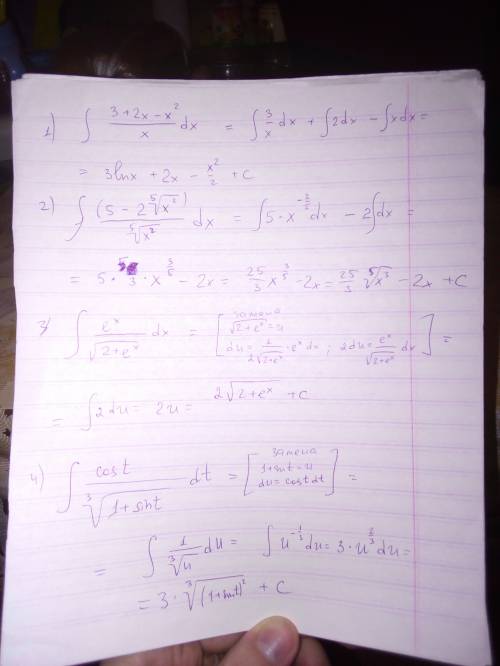 1) ∫ (3+2x-x²)/x dx = ∫ 3/x dx + ∫2dx - ∫xdx =
= 3lnx + 2x - x²/2 + c
2) ∫ (5 - 2⁵√x²)/⁵√x² dx = ∫5·x^(-2/5) dx - 2∫dx =
= 5·5/3·x^(3/5) - 2x = 25/3 x^(3/5) - 2x = 25/3 ⁵√x³ - 2x + C
3) ∫ eˣ/√(2+eˣ) dx = [замена
√(2+eˣ) = u
du = 1/(2√(2+eˣ))·eˣdx ; 2du = eˣ/√(2+eˣ) dx] =
= ∫2du = 2u = 2√(2+eˣ) + c
4) ∫ cost/³√(1+sint) dt = [замена
1+sint = u
du = costdt] =
= ∫ 1/³√u du = ∫u^(-1/3) du = 3·u^(2/3) du =
= 3·³√(1+sint)² + C